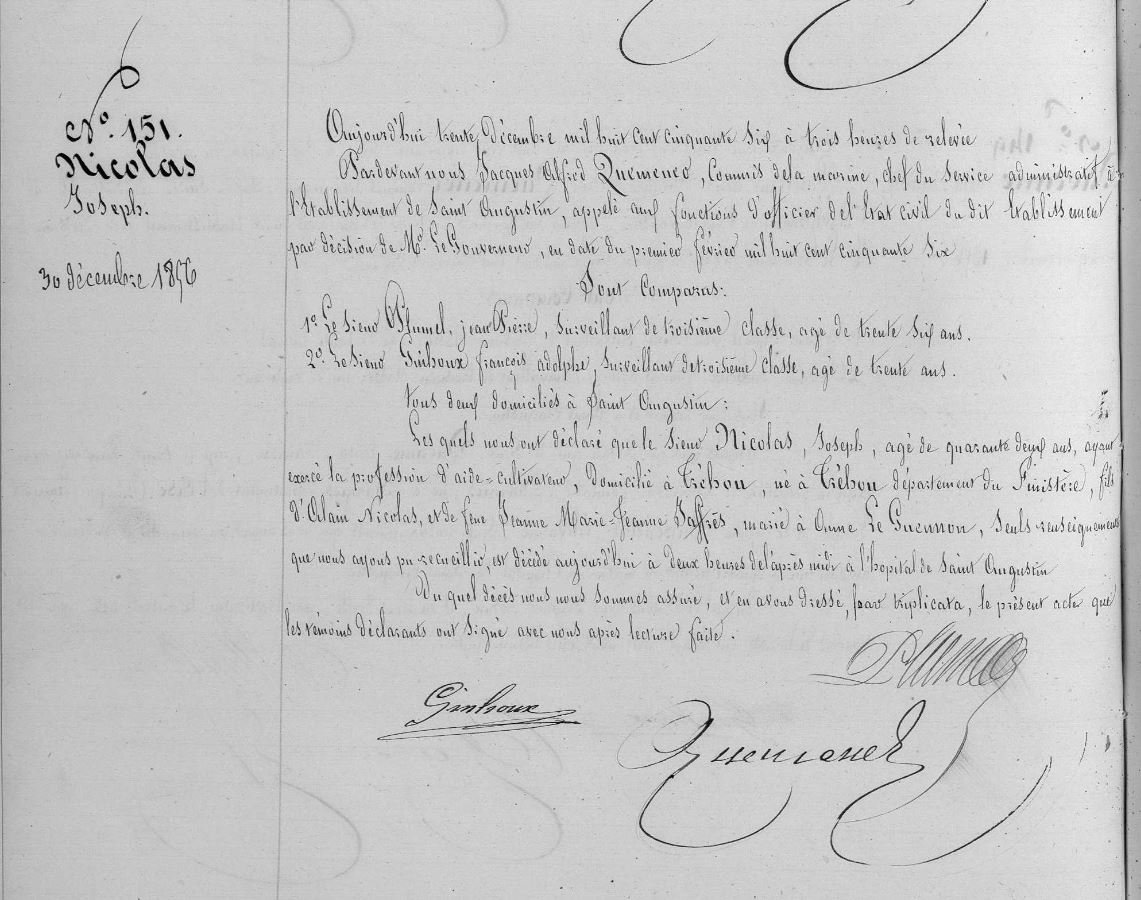 N° 151.
Nicolas
Joseph.
30 décembre 1856
Aujourd'hui trente Décembre mil huit cent cinquante six à trois heures de relevée
Pardevant nous Jacques Alfred Quemener, Commis de la marine, chef du Service administratif à
l'Etablissement de Saint Augustin, appelé aux fonctions d'officier de l'Etat civil du dit Etablissement
par décision de Mr Le Gouverneur, en date du premier février mil huit cent cinquante six
Sont Comparus:
1° Le Sieur Plumel, jean Pierre, Surveillant de troisième classe, agé de trente six ans.
2° Le Sieur Ginhoux françois adolphe, Surveillant de troisième classe, agé de trente ans.
tous deux domiciliés à Saint Augustin:
Les quels nous ont déclaré que le Sieur Nicolas, Joseph, agé de quarante deux ans, ayant
exercé la profession d'aide-cultivateur, Domicilié à Tréhou, né à Tréhou département du Finistère, fils
d'Alain Nicolas, et de feue Jeanne Marie-Jeanne Jaffrès, marié à Anne Le Guennon, Seuls renseignements
que nous ayons pu recueillir, est décédé aujourd'hui à deux heures de l'après midi à l'hopital de Saint Augustin
Du quel décès nous nous sommes assuré, et en avons dressé, par triplicata, le présent acte que
les témoins déclarants ont signé avec nous après lecture faite.
Plumel
Ginhoux
Quemener